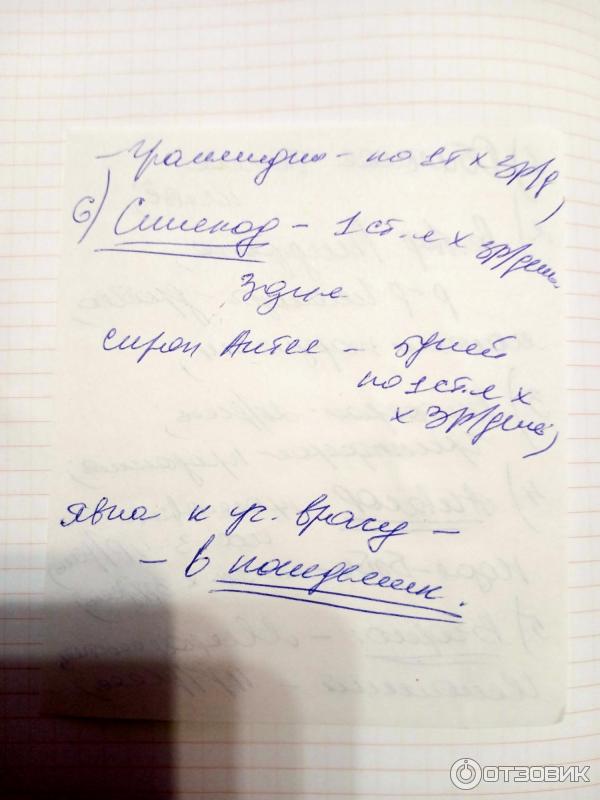 - Граммидин - по 1т х 3р/д,
6) Синекод - 1 ст.л х 3р/день
3 дня
сироп Алтея - 5 дней
по 1 ст.л х
х 3р/день,
явка к уч. врачу -
- в понедельник.
ОТЗОВИК